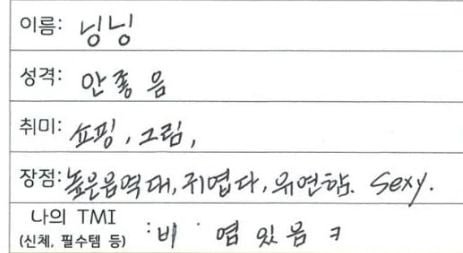 이름: 닝닝
성격: 안좋음
취미: 쇼핑, 그림,
장점: 높은음역대, 귀엽다, 유연함. Sexy.
나의 TMI : 비염있음 ㅋ
(신체, 필수템 등)